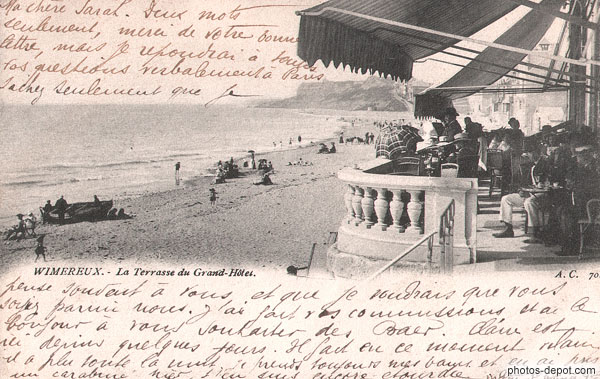 Ma chère Sarah. Deux mots
seulement, merci de votre bonne
lettre, mais je répondrai à tous
vos questions verbalement à Paris
Sachez seulement que je
WIMEREUX. - La Terrasse du Grand-Hôtel.
A. C. 70
pense souvent à vous, et que je voudrais que vous
soyez parmi nous. J'ai fait vos commissions, et ai le
bonjour à vous souhaiter des Claire est
ici depuis quelques jours. Il fait en ce moment
il a plu toute la nuit. je prends toujours mes bains et en ai pris
un ce suis encore étourdie
photos-depot.com